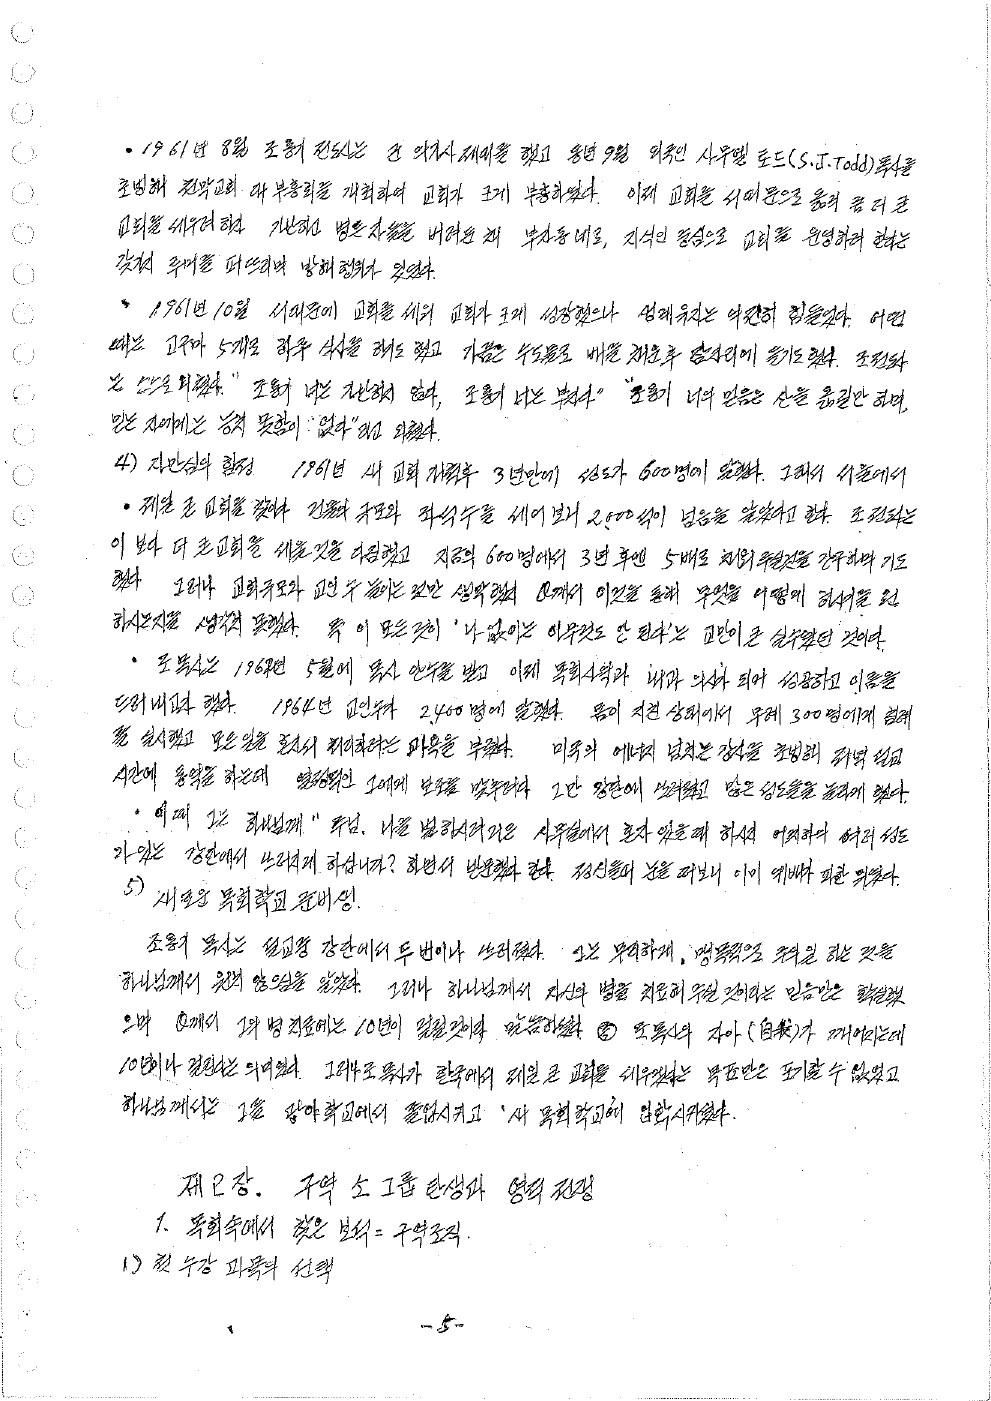 • 1961년 8월 조용기 전도사는 군 의가사 제대를 했고 동년 9월 외국인 사무엘 토드(S.J.Todd)목사를
초빙해 천막교회 대 부흥회를 개최하여 교회가 크게 부흥하였다. 이제 교회를 서대문으로 옮겨 좀 더 큰
교회를 세우려 하자 가난하고 병든 자들을 버려둔 채 부자동네로, 지식인 중심으로 교회를 운영하려 한다는
갖가지 루머를 퍼뜨리며 방해 행위가 있었다.
• 1961년 10월 서대문에 교회를 세워 교회가 크게 성장했으나 생계유지는 여전히 힘들었다. 어떤
때는 고구마 5개로 하루 식사를 하기도 했고 가끔은 수돗물로 배를 채운 후 잠자리에 들기도 했다. 조전도사
는 외쳤다. "조용기 너는 가난하지 않다, 조용기 너는 부자다" "조용기 너의 믿음은 산을 옮길만 하며,
믿는 자에게는 능치 못함이 없다"라고 외쳤다.
4) 자만심의 함정 1961년 새 교회 개척후 3년만에 성도가 600명에 달했다. 그래서 서울에서
• 제일 큰 교회를 찾아가 건물의 규모와 좌석 수를 세어 보니 2,000석이 넘음을 알았다고 한다. 조전도사는
이 보다 더 큰 교회를 세울 것을 다짐했고 지금의 600명에서 3년 후엔 5배로 채워 주실것을 간구하며 기도
했다 그러나 교회규모와 교인 수 늘이는 것만 생각했지 께서 이것을 통해 무엇을 어떻게 하시기를 원
하시는지를 생각지 못했다. 즉 이 모든 것이 '나 없이는 아무것도 안 된다'는 교만이 큰 실수였던 것이다.
• 조목사는 196년 5월에 목사 안수를 받고 이제 목회사역과 의사가 되어 성공하고 이름을
드러내고자 했다. 1964년 교인수가 2,400명에 달했다. 몸이 지친 상태에서 무려 300명에게 침례
를 실시했고 모든 일을 혼자서 처리하려는 과욕을 부렸다. 미국의 에너지 넘치는 강사를 초빙해 저녁 설교
시간에 통역을 하는데 열정적인 그에게 보조를 맞추려다 그만 강단에 쓰러졌고 많은 성도들을 놀라게 했다.
• 이때 그는 하나님께 "주님, 나를 벌하시려거든 사무실에서 혼자 있을 때 하시지 어찌하여 여러 성도
가 있는 강단에서 쓰러지게 하십니까? 하면서 반문했다 한다. 정신들어 눈을 떠보니 이미 예배가 파한 뒤였다.
5) 새로운 목회학교 준비생.
조용기 목사는 설교중 강단에서 두 번이나 쓰러졌다. 그는 무리하게, 맹목적으로 주의 일 하는 것을
하나님께서 원치 않으심을 알았다. 그러나 하나님께서 자신의 병을 치료해 주실 것이라는 믿음만은 확실했
으며 께서 그의 병 치료에는 10년이 걸릴것이라 말씀하셨다. 조목사의 자아(自我)가 깨어지는데
10년이나 걸린다는 의미였다. 그러나 조목사가 한국에서 제일 큰 교회를 세우겠다는 목표만은 포기할 수 없었고
하나님께서는 그를 광야학교에서 졸업시키고 '새 목회학교'에 입학시키셨다.
제2장. 구역 소그룹 탄생과 영적 전쟁
1. 목회속에서 찾은 보석 = 구역조직.
1) 첫 수강 과목의 선택
-5-